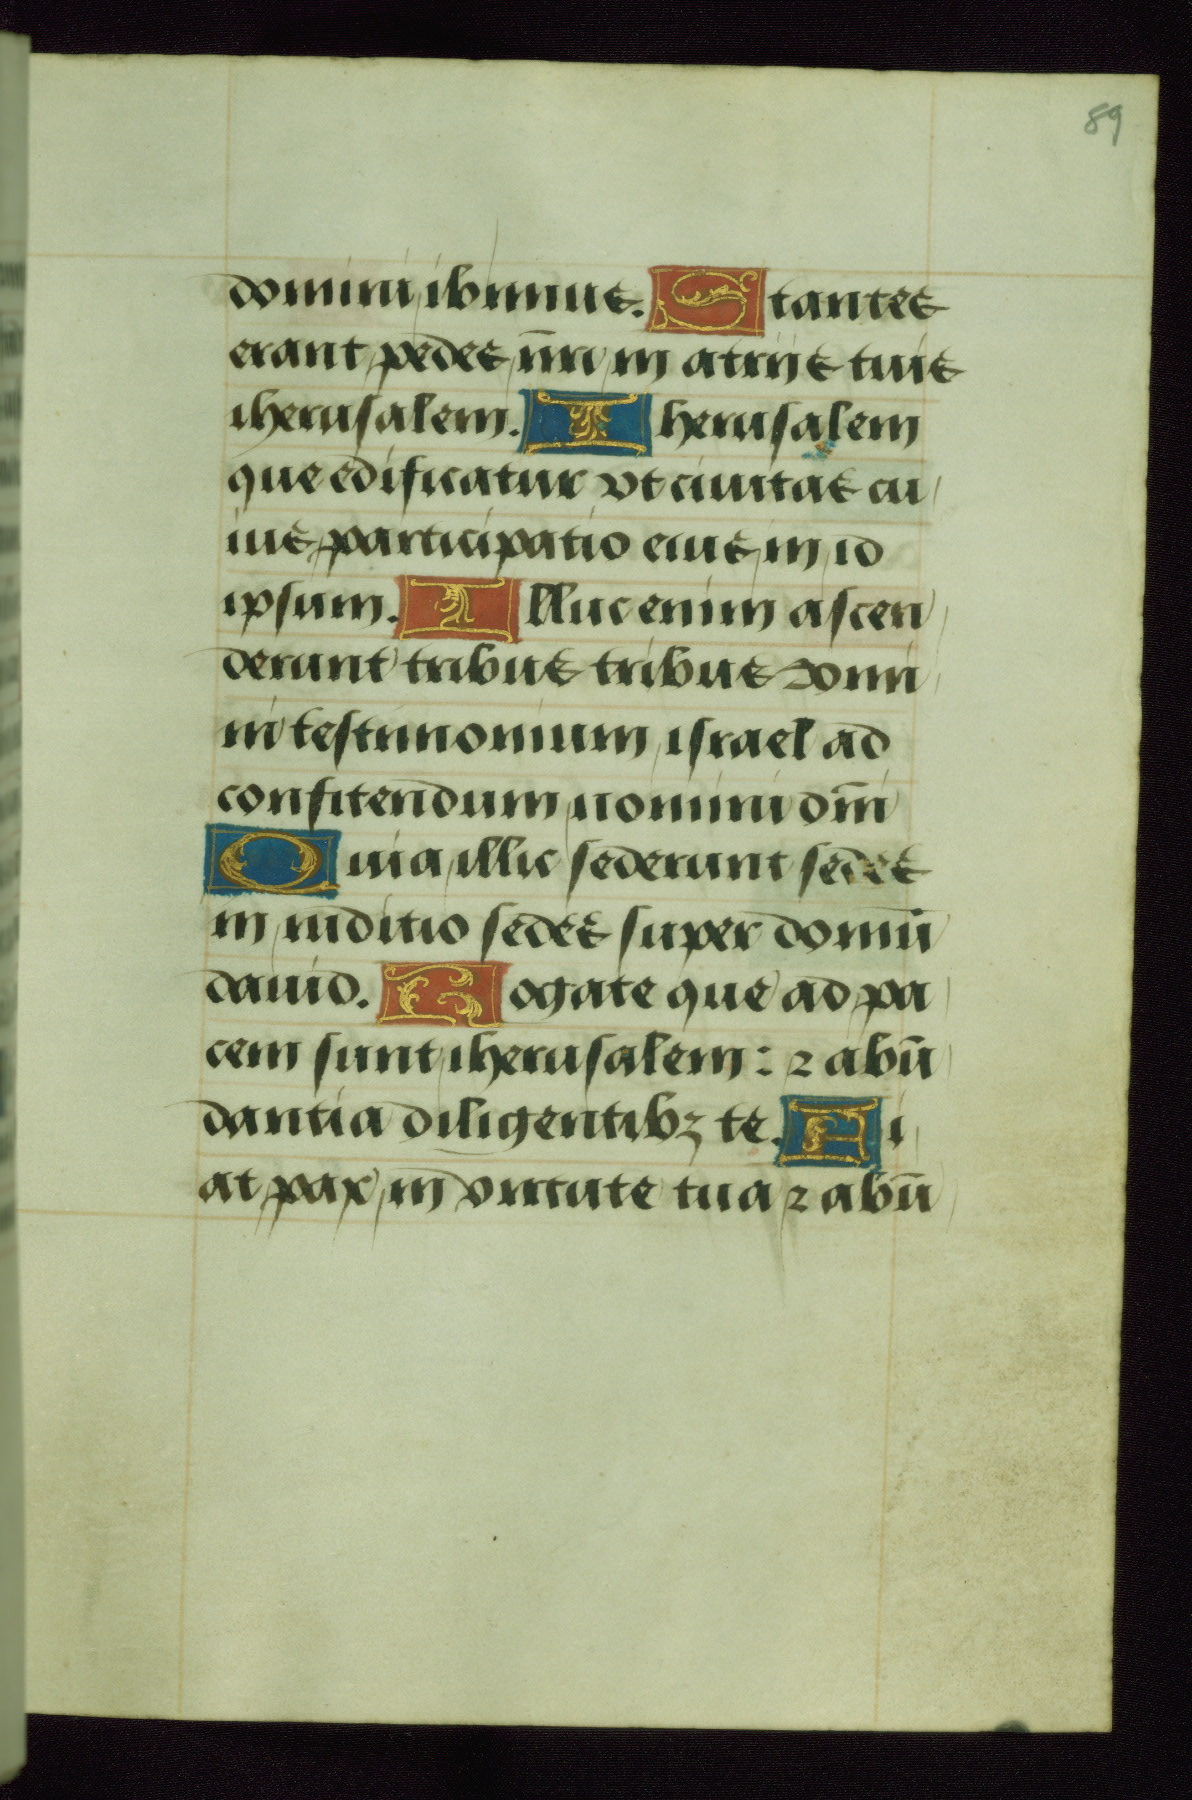 89
domini ibimus. Stantes
erant pedes nr̄i in atrijs tuis
iherusalem. Iherusalem
que edificatur vt ciuitas cu
ius participatio eius in id
ipsum. Illuc enim ascen
derunt tribus tribus domi
ni testimonium israel ad
confitendum nomini dn̄i
Quia illic sederunt sedes
in iuditio sedes super domū
dauid. Rogate que ad pa
cem sunt iherusalem: ⁊ abū
dantia diligentibꝫ te. Fi
at pax in virtute tua ⁊ abū